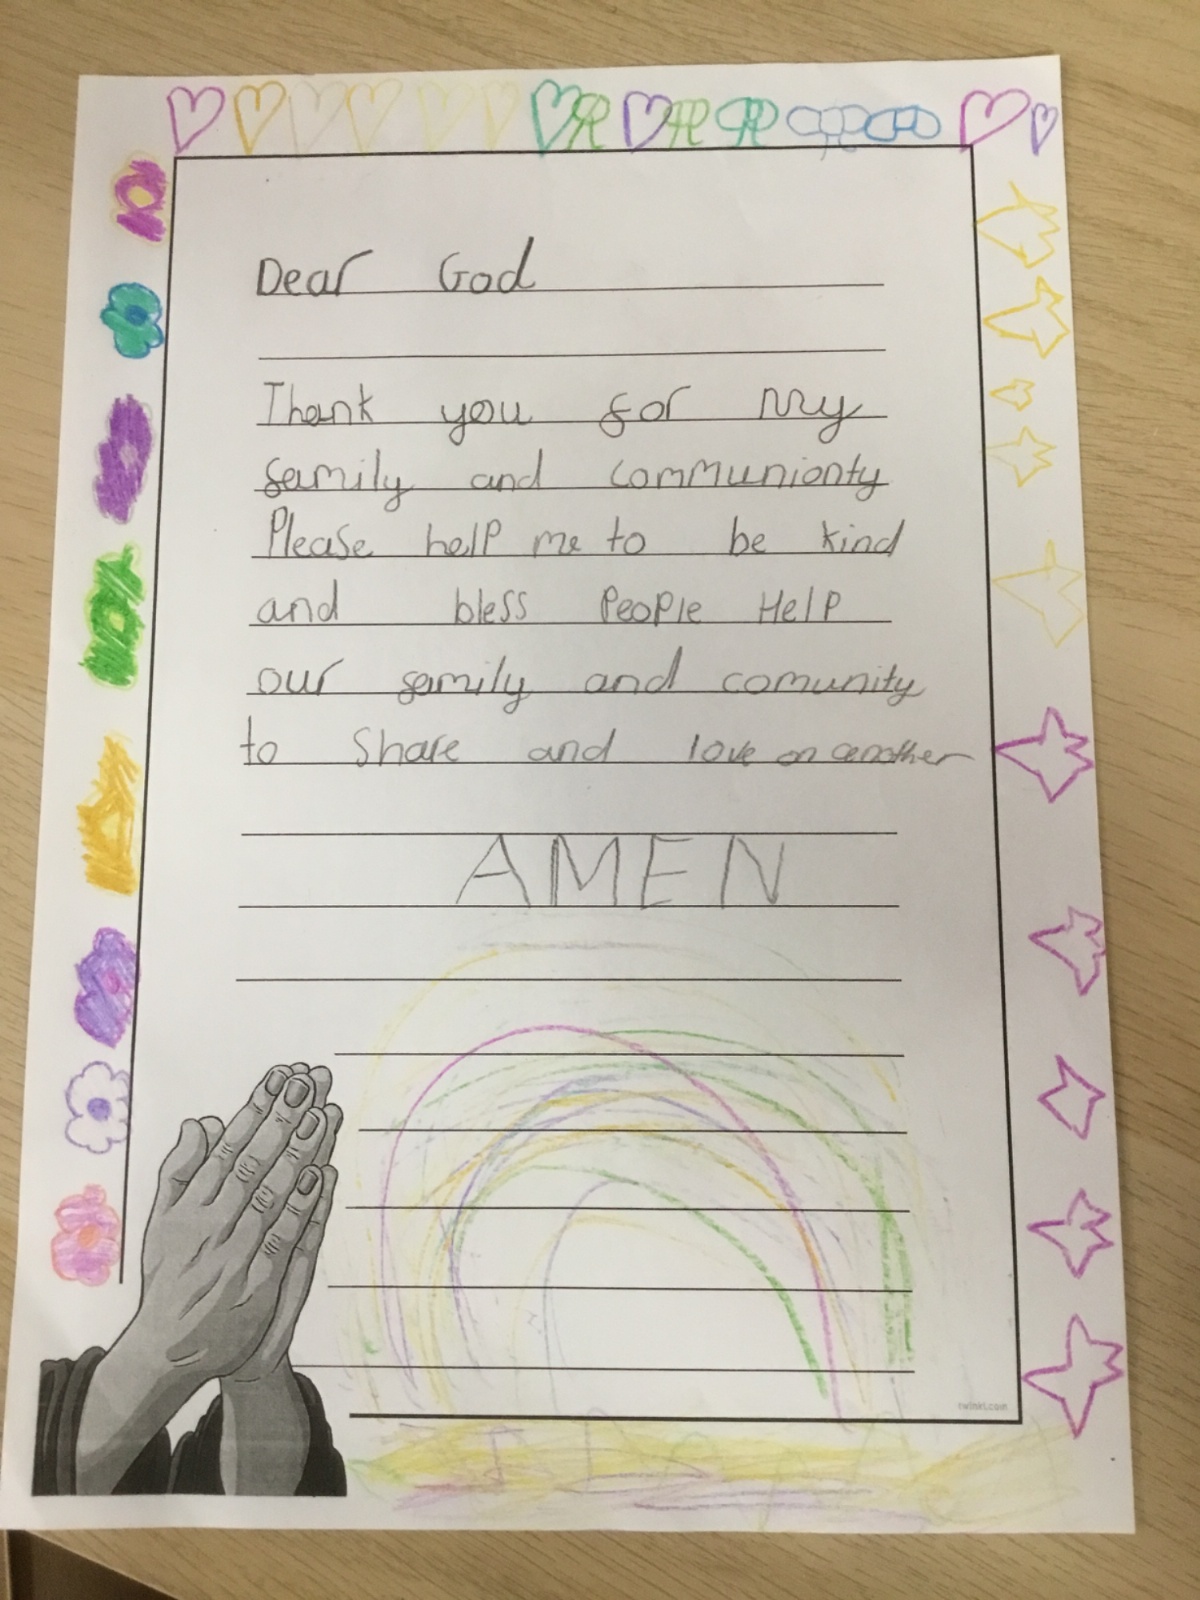 Dear God
Thank you for my
family and communionty
Please help me to be kind
and bless People Help
our family and comunity
to Share and love on another
AMEN
twinkl.com